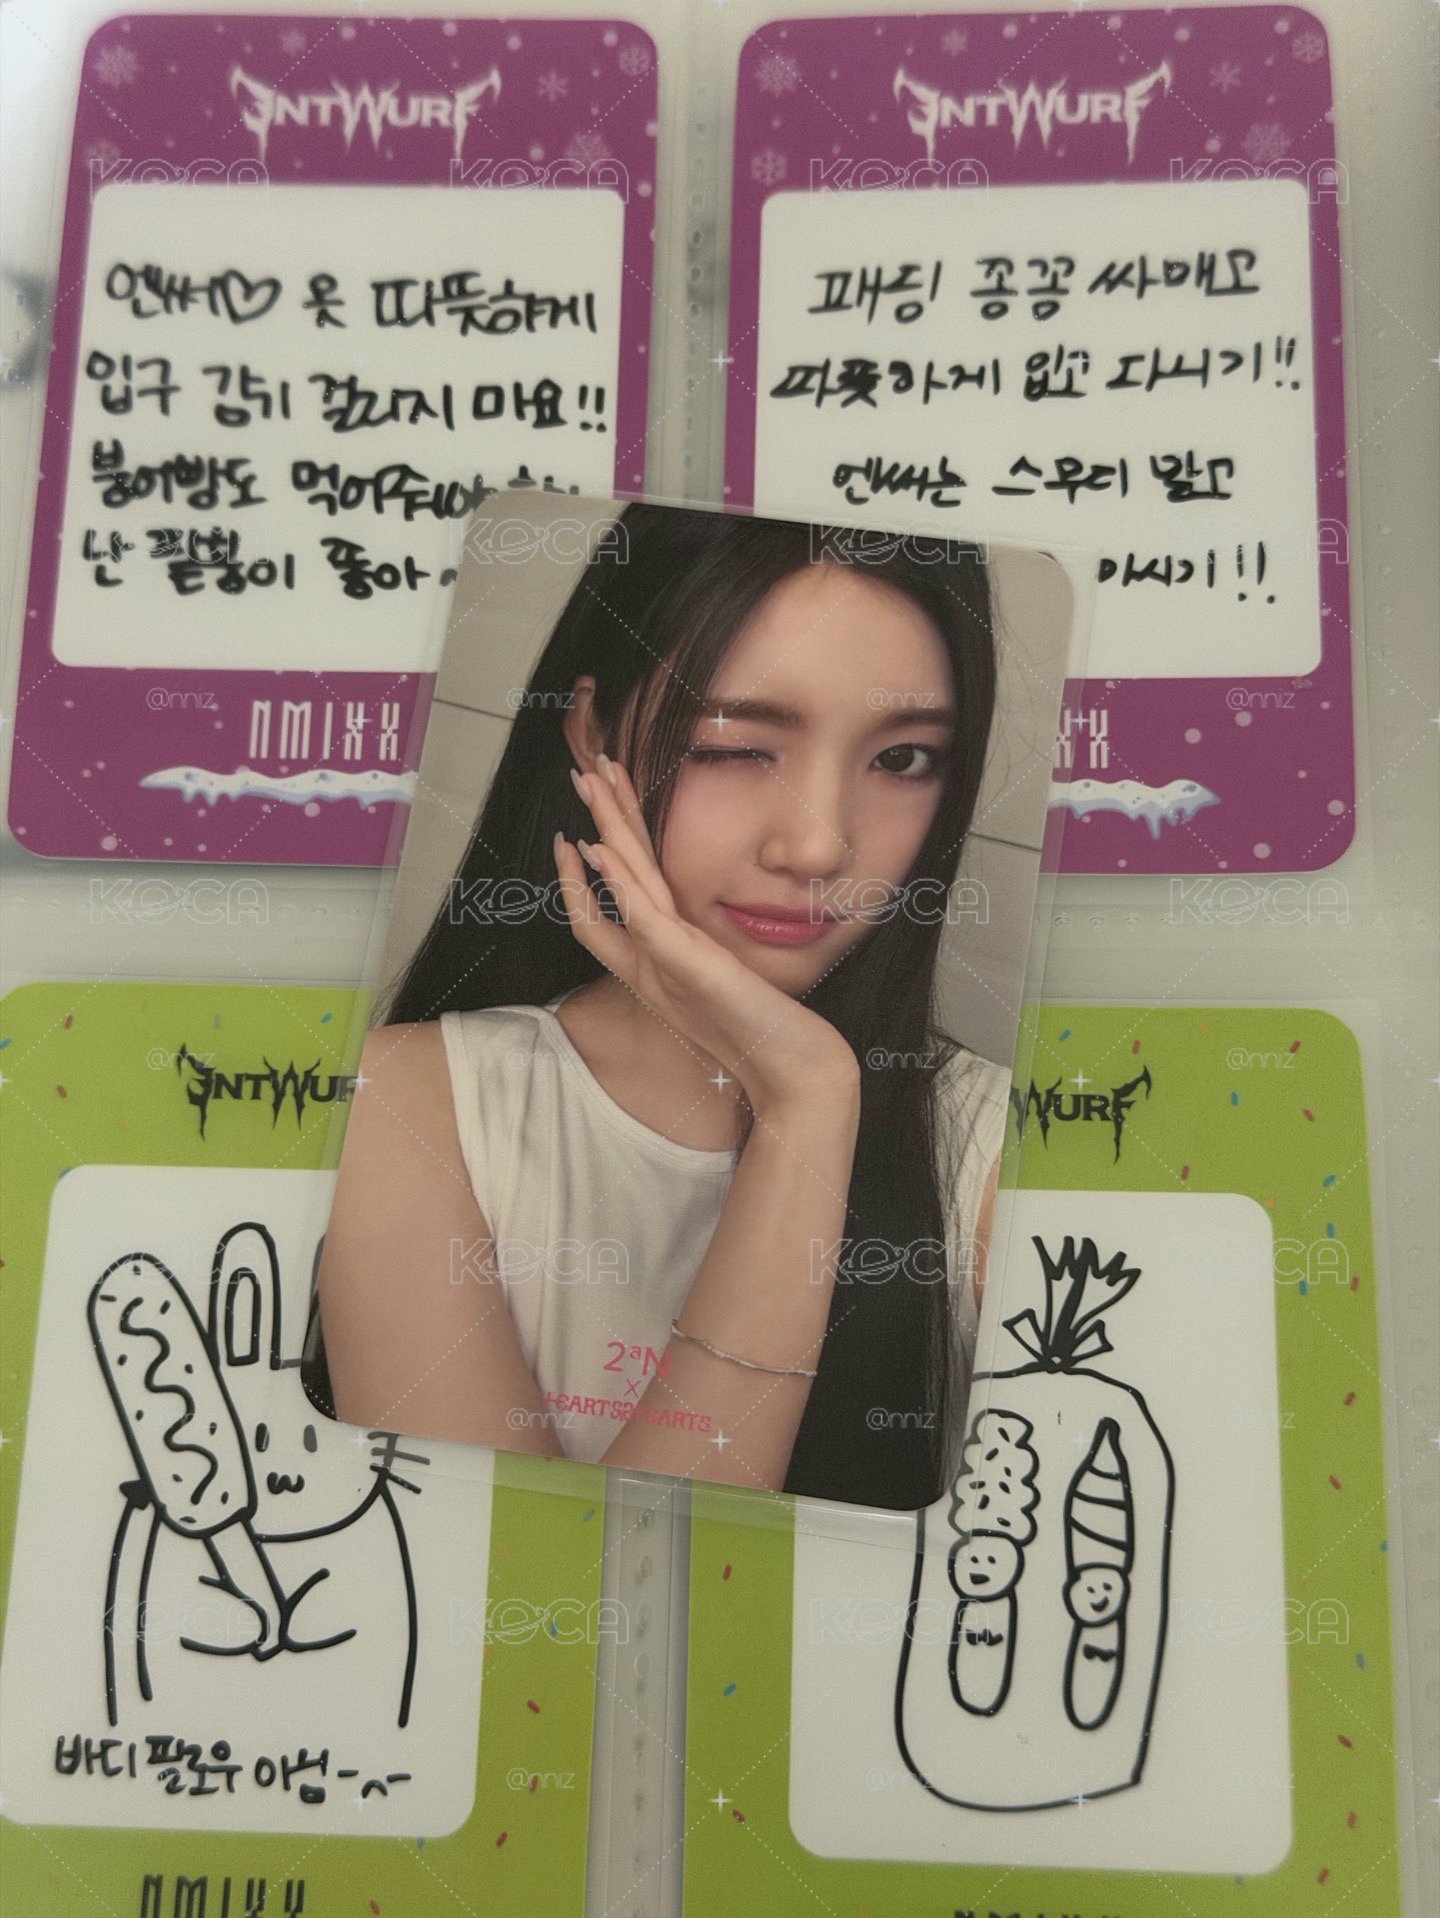 ENTWURF
엔써♡ 옷 따뜻하게
입구 감귀 걸리지 마요!!
붕어빵도 먹어줘야
난 팥붕이 좋아~
NMIXX
ENTWURF
패딩 종꽁 싸매고
따뜻하게 입고 다니기!!
엔써는 스무디 말고
마시기!!
XX
2aN
X
HEARTS2HEARTS
ENTWUR
바디 필로우 아님
NMIXX
WURF
KOCA
@nniz